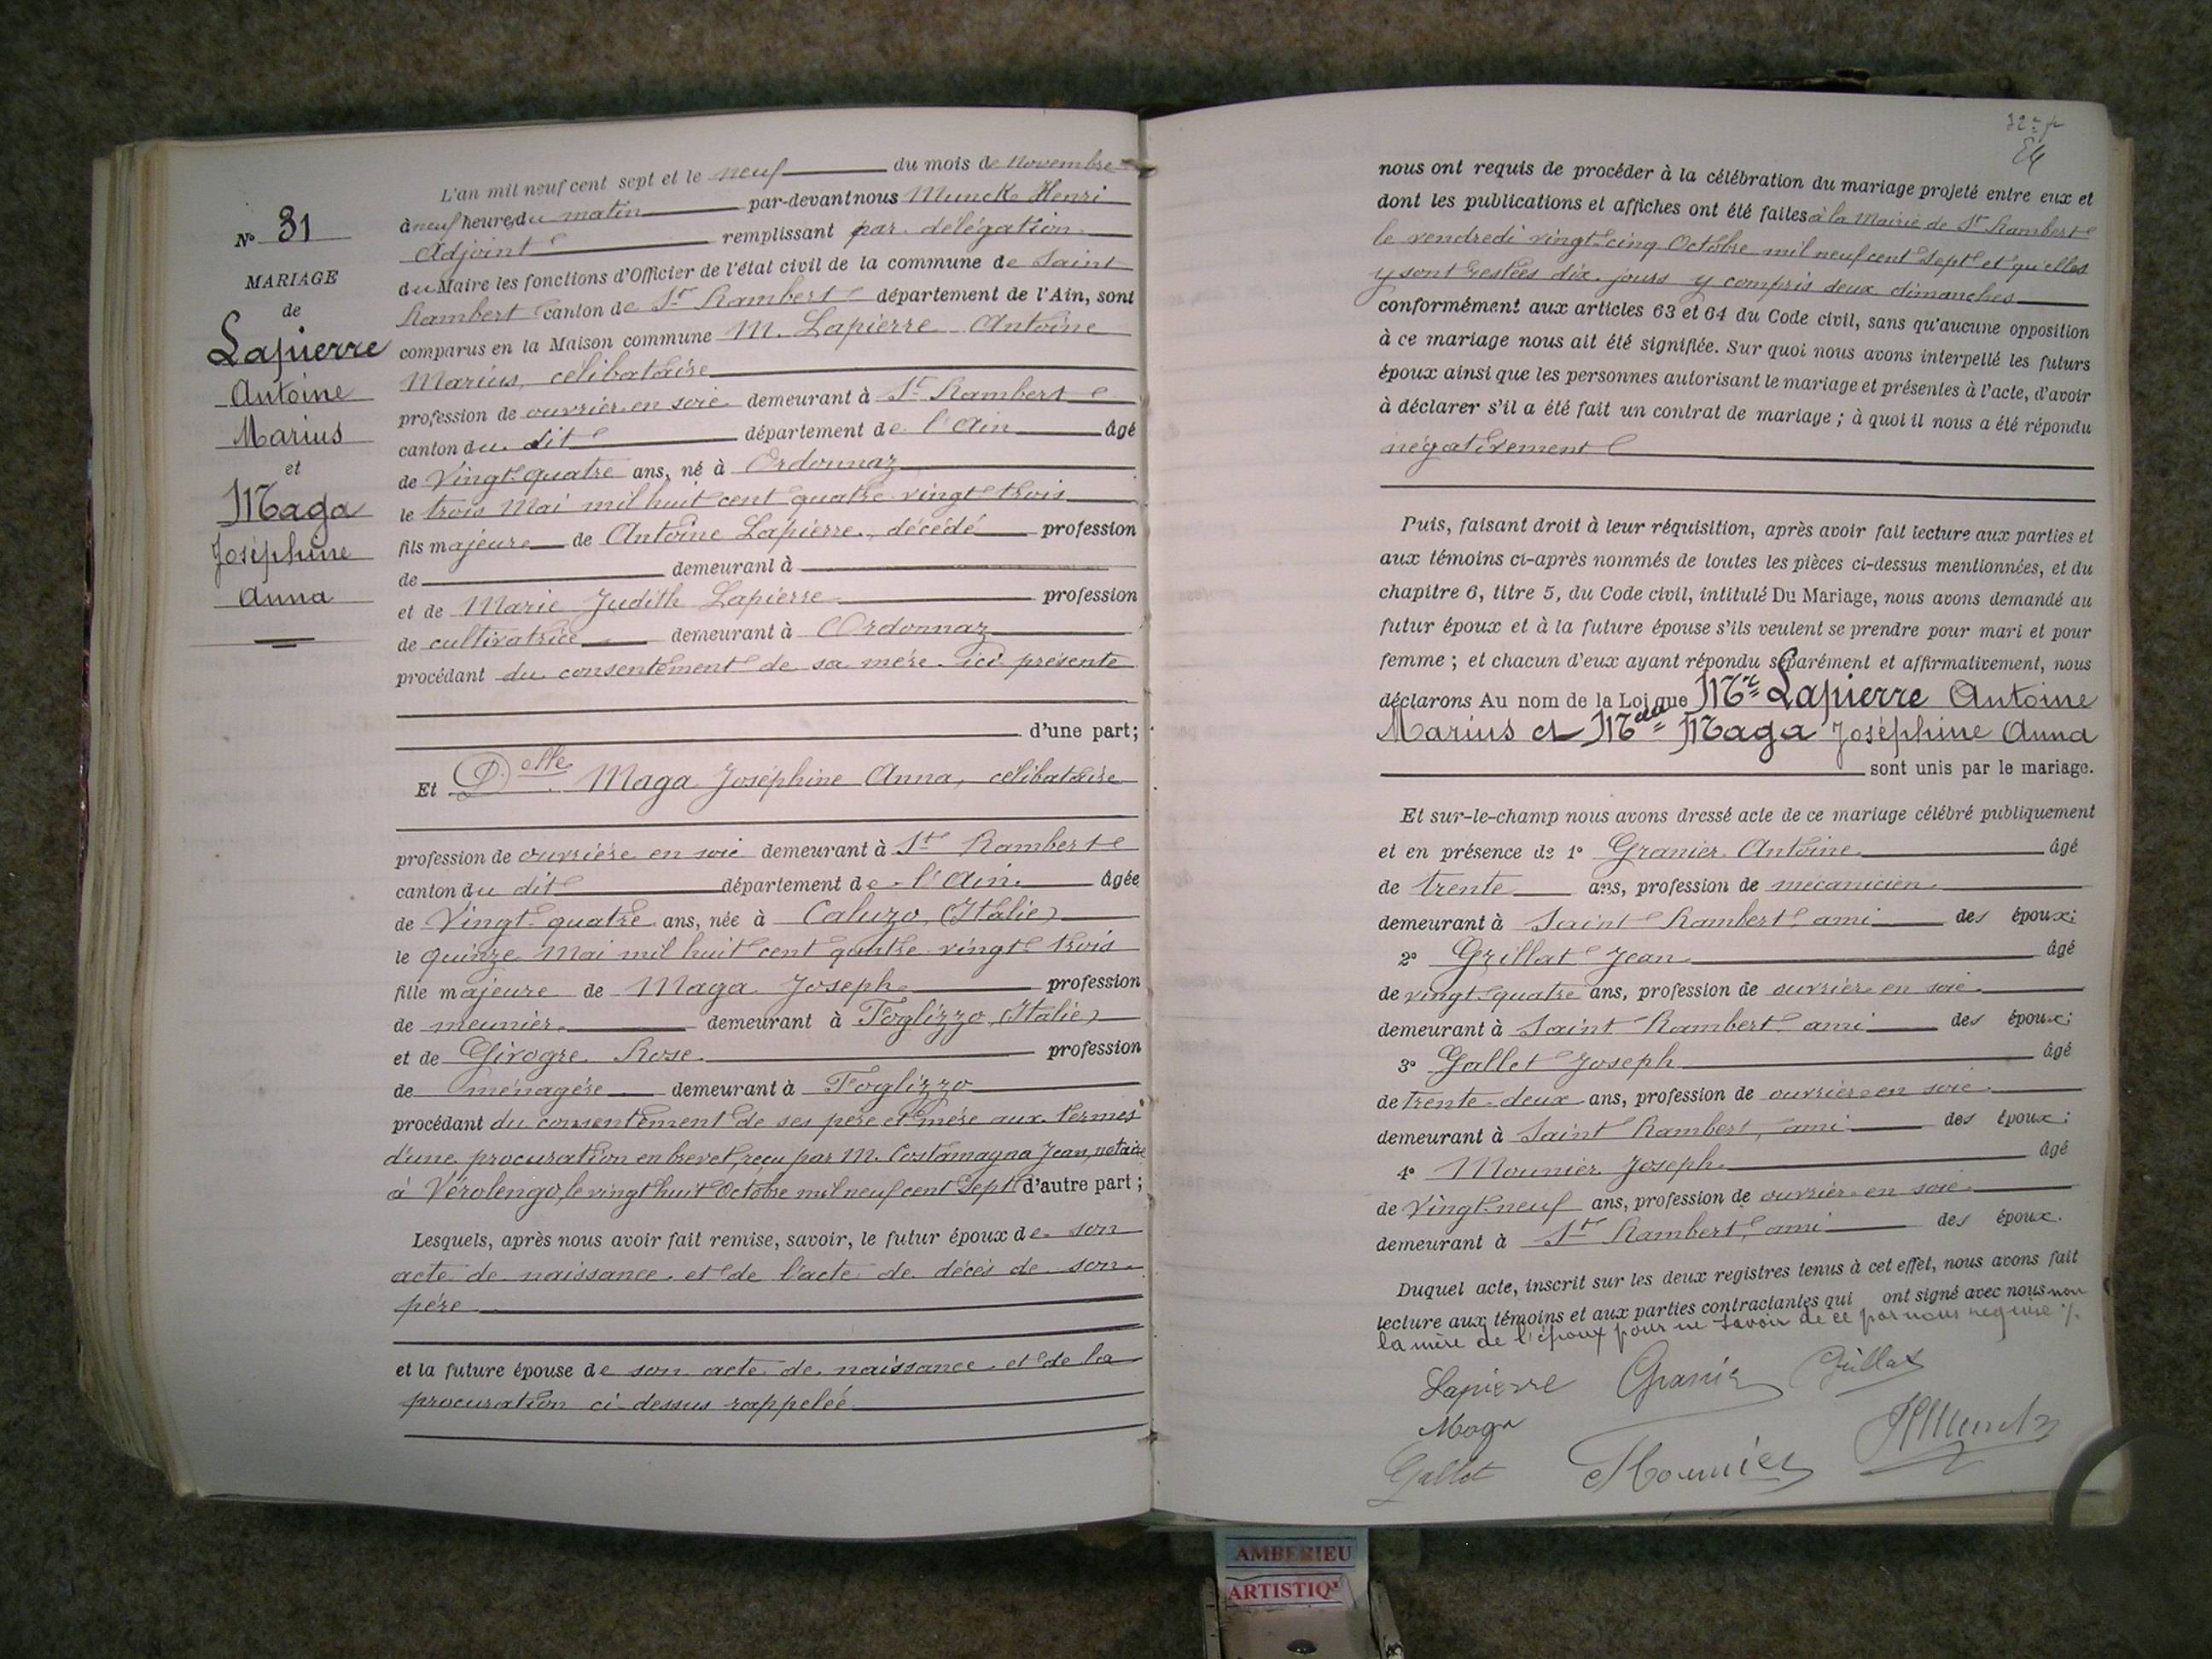 N° 31
MARIAGE
de
Lapierre
Antoine
Marius
et
Maga
Joséphine
Anna
L'an mil neuf cent sept et le neuf du mois de Novembre
à neuf heures du matin par-devant nous Munck Henri
Adjoint remplissant par délégation
du Maire les fonctions d'Officier de l'état civil de la commune de Saint
Rambert canton de St Rambert département de l'Ain, sont
comparus en la Maison commune M. Lapierre Antoine
Marius, célibataire
profession de ouvrier en soie demeurant à St Rambert
canton du dit département de l'Ain âgé
de Vingt quatre ans, né à Ordonnaz
le trois Mai mil huit cent quatre vingt trois
fils majeure de Antoine Lapierre, décédé profession
de demeurant à
et de Marie Judith Lapierre profession
de cultivatrice demeurant à Ordonnaz
procédant du consentement de sa mère ici présente
d'une part;
Et Delle Maga Joséphine Anna, célibataire
profession de ouvrière en soie demeurant à St Rambert
canton du dit département de l'Ain âgée
de Vingt-quatre ans, née à Caluzo (Italie)
le quinze Mai mil huit cent quatre vingt trois
fille majeure de Maga Joseph profession
de meunier demeurant à Foglizzo (Italie)
et de Girogre Rose profession
de ménagère demeurant à Foglizzo
procédant du consentement de ses père et mère aux termes
d'une procuration en brevet, reçu par M. Costamagna Jean, notaire
à Vérolengo, le vingt huit Octobre mil neuf cent sept d'autre part;
Lesquels, après nous avoir fait remise, savoir, le futur époux de son
acte de naissance et de l'acte de décès de son
père
et la future épouse de son acte de naissance et de la
procuration ci-dessus rappelée
nous ont requis de procéder à la célébration du mariage projeté entre eux et
dont les publications et affiches ont été faites à la Mairie de St Rambert
le vendredi vingt-cinq Octobre mil neuf cent sept et qu'elles
y sont restées dix jours y compris deux dimanches
conformément aux articles 63 et 64 du Code civil, sans qu'aucune opposition
à ce mariage nous ait été signifiée. Sur quoi nous avons interpellé les futurs
époux ainsi que les personnes autorisant le mariage et présentes à l'acte, d'avoir
à déclarer s'il a été fait un contrat de mariage; à quoi il nous a été répondu
négativement
Puis, faisant droit à leur réquisition, après avoir fait lecture aux parties et
aux témoins ci-après nommés de toutes les pièces ci-dessus mentionnées, et du
chapitre 6, titre 5, du Code civil, intitulé Du Mariage, nous avons demandé au
futur époux et à la future épouse s'ils veulent se prendre pour mari et pour
femme; et chacun d'eux ayant répondu séparément et affirmativement, nous
déclarons Au nom de la Loi que Mr Lapierre Antoine
Marius et Mlle Maga Joséphine Anna
sont unis par le mariage.
Et sur-le-champ nous avons dressé acte de ce mariage célébré publiquement
et en présence de 1° Granier Antoine âgé
de trente ans, profession de mécanicien
demeurant à Saint Rambert, ami des époux;
2° Grillat Jean âgé
de vingt quatre ans, profession de ouvrier en soie
demeurant à Saint Rambert ami des époux;
3° Gallet Joseph âgé
de trente-deux ans, profession de ouvrier en soie
demeurant à Saint Rambert, ami des époux;
4° Mounier Joseph âgé
de Vingt-neuf ans, profession de ouvrier en soie
demeurant à St Rambert, ami des époux.
Duquel acte, inscrit sur les deux registres tenus à cet effet, nous avons fait
lecture aux témoins et aux parties contractantes qui ont signé avec nous non
la mère de l'époux pour ne savoir de ce par nous requise
Lapierre Granier Grillat
Maga
Gallet Mounier HMunck
AMBERIEU
ARTISTIQ